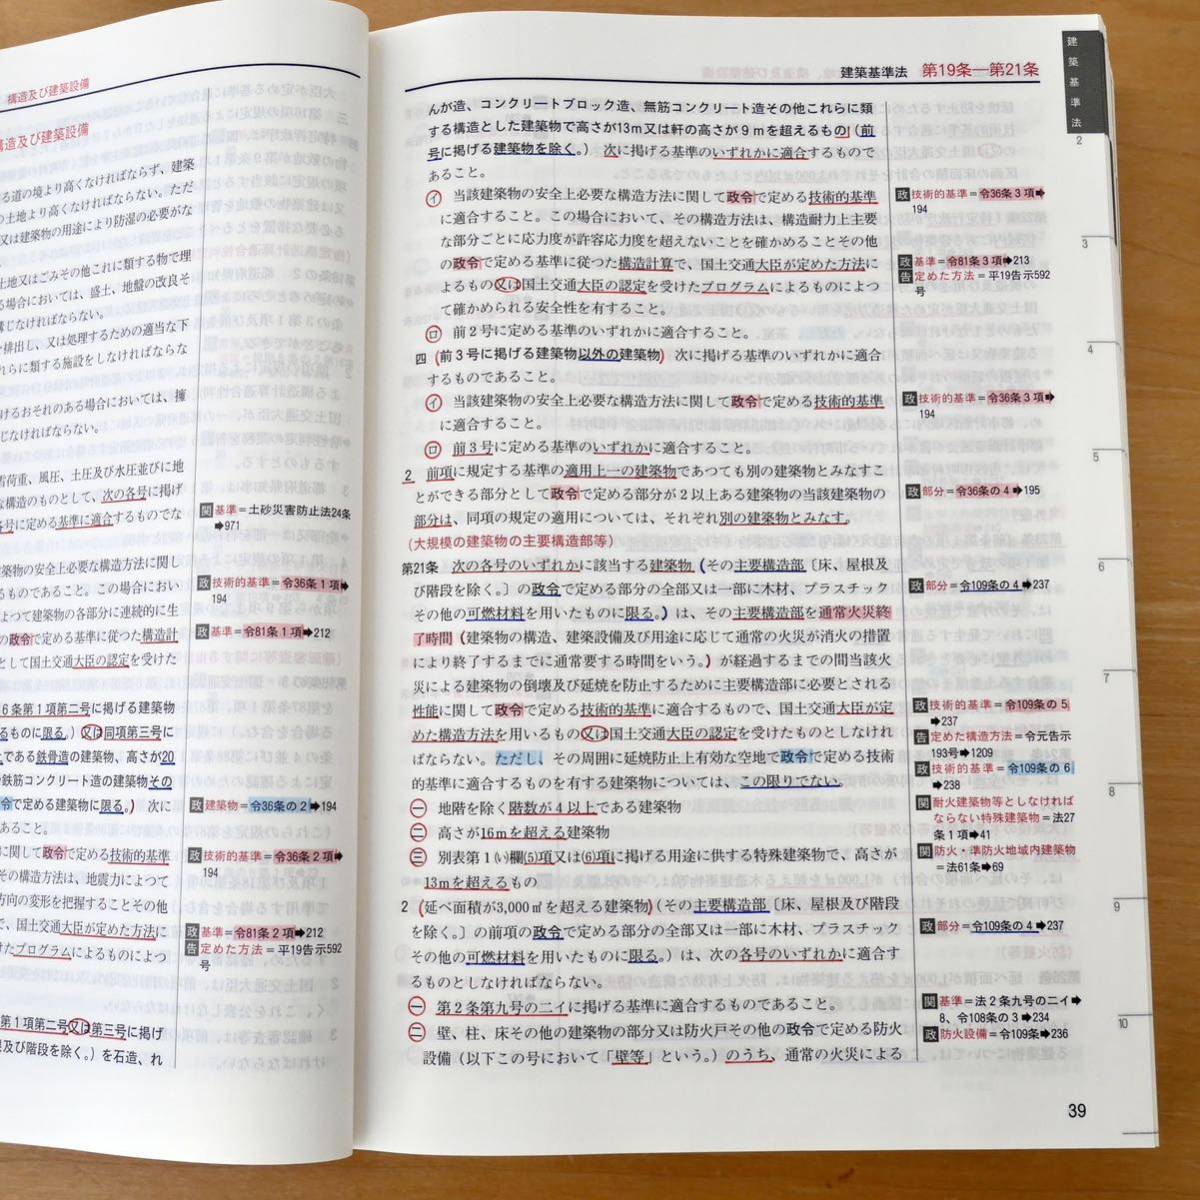 構造及び建築設備
構造及び建築設備
る道の境より高くなければならず、建築
の土地より高くなければならない。ただ
又は建築物の用途により防湿の必要がな
土地又はごみその他これに類する物で埋
る場合においては、盛土、地盤の改良そ
講じなければならない。
を排出し、又は処理するための適当な下
れらに類する施設をしなければならな
けるおそれのある場合においては、擁
じなければならない。
雪荷重、風圧、土圧及び水圧並びに地
な構造のものとして、次の各号に掲げ
各号に定める基準に適合するものでな
関 基準=土砂災害防止法24条
➡971
築物の安全上必要な構造方法に関し
るものであること。この場合におい
よつて建築物の各部分に連続的に生
の政令で定める基準に従つた構造計
として国土交通大臣の認定を受けた
政 技術的基準=令36条1項➡
194
政 基準=令81条1項➡212
6条第1項第二号に掲げる建築物
るものに限る。)又は同項第三号に
である鉄骨造の建築物、高さが20
鉄筋コンクリート造の建築物その
令で定める建築物に限る。) 次に
あること。
政 建築物=令36条の2➡194
に関して政令で定める技術的基準
その構造方法は、地震力によつて
方向の変形を把握することその他
で、国土交通大臣が定めた方法に
けたプログラムによるものによつ
政 技術的基準=令36条2項➡
194
政 基準=令81条2項➡212
告 定めた方法=平19告示592
号
第1項第二号又は第三号に掲げ
根及び階段を除く。)を石造、れ
建築基準法 第19条―第21条
建築基準法
んが造、コンクリートブロック造、無筋コンクリート造その他これらに類
する構造とした建築物で高さが13m又は軒の高さが9mを超えるもの(前
号に掲げる建築物を除く。) 次に掲げる基準のいずれかに適合するもので
あること。
イ 当該建築物の安全上必要な構造方法に関して政令で定める技術的基準
に適合すること。この場合において、その構造方法は、構造耐力上主要
な部分ごとに応力度が許容応力度を超えないことを確かめることその他
の政令で定める基準に従つた構造計算で、国土交通大臣が定めた方法に
よるもの又は国土交通大臣の認定を受けたプログラムによるものによつ
て確かめられる安全性を有すること。
ロ 前2号に定める基準のいずれかに適合すること。
四 (前3号に掲げる建築物以外の建築物) 次に掲げる基準のいずれかに適合
するものであること。
イ 当該建築物の安全上必要な構造方法に関して政令で定める技術的基準
に適合すること。
ロ 前3号に定める基準のいずれかに適合すること。
2 前項に規定する基準の適用上一の建築物であつても別の建築物とみなすこ
とができる部分として政令で定める部分が2以上ある建築物の当該建築物の
部分は、同項の規定の適用については、それぞれ別の建築物とみなす。
(大規模の建築物の主要構造部等)
第21条 次の各号のいずれかに該当する建築物(その主要構造部〔床、屋根及
び階段を除く。〕の政令で定める部分の全部又は一部に木材、プラスチック
その他の可燃材料を用いたものに限る。)は、その主要構造部を通常火災終
了時間(建築物の構造、建築設備及び用途に応じて通常の火災が消火の措置
により終了するまでに通常要する時間をいう。)が経過するまでの間当該火
災による建築物の倒壊及び延焼を防止するために主要構造部に必要とされる
性能に関して政令で定める技術的基準に適合するもので、国土交通大臣が定
めた構造方法を用いるもの又は国土交通大臣の認定を受けたものとしなけれ
ばならない。ただし、その周囲に延焼防止上有効な空地で政令で定める技術
的基準に適合するものを有する建築物については、この限りでない。
一 地階を除く階数が4以上である建築物
二 高さが16mを超える建築物
三 別表第1(い)欄(5)項又は(6)項に掲げる用途に供する特殊建築物で、高さが
13mを超えるもの
2 (延べ面積が3,000㎡を超える建築物)(その主要構造部〔床、屋根及び階段
を除く。〕の前項の政令で定める部分の全部又は一部に木材、プラスチック
その他の可燃材料を用いたものに限る。)は、次の各号のいずれかに適合す
るものとしなければならない。
一 第2条第九号の二イに掲げる基準に適合するものであること。
二 壁、柱、床その他の建築物の部分又は防火戸その他の政令で定める防火
設備(以下この号において「壁等」という。)のうち、通常の火災による
政 技術的基準=令36条3項➡
194
政 基準=令81条3項➡213
告 定めた方法=平19告示592
号
政 技術的基準=令36条3項➡
194
政 部分=令36条の4➡195
政 部分=令109条の4➡237
政 技術的基準=令109条の5
➡237
告 定めた構造方法=令元告示
193号➡1209
政 技術的基準=令109条の6
➡238
関 耐火建築物等としなければ
ならない特殊建築物=法27
条1項➡41
関 防火・準防火地域内建築物
=法61条➡69
政 部分=令109条の4➡237
関 基準=法2条九号の二イ➡
8、令108条の3➡234
政 防火設備=令109条➡236
2
3
4
5
6
7
8
9
10
39